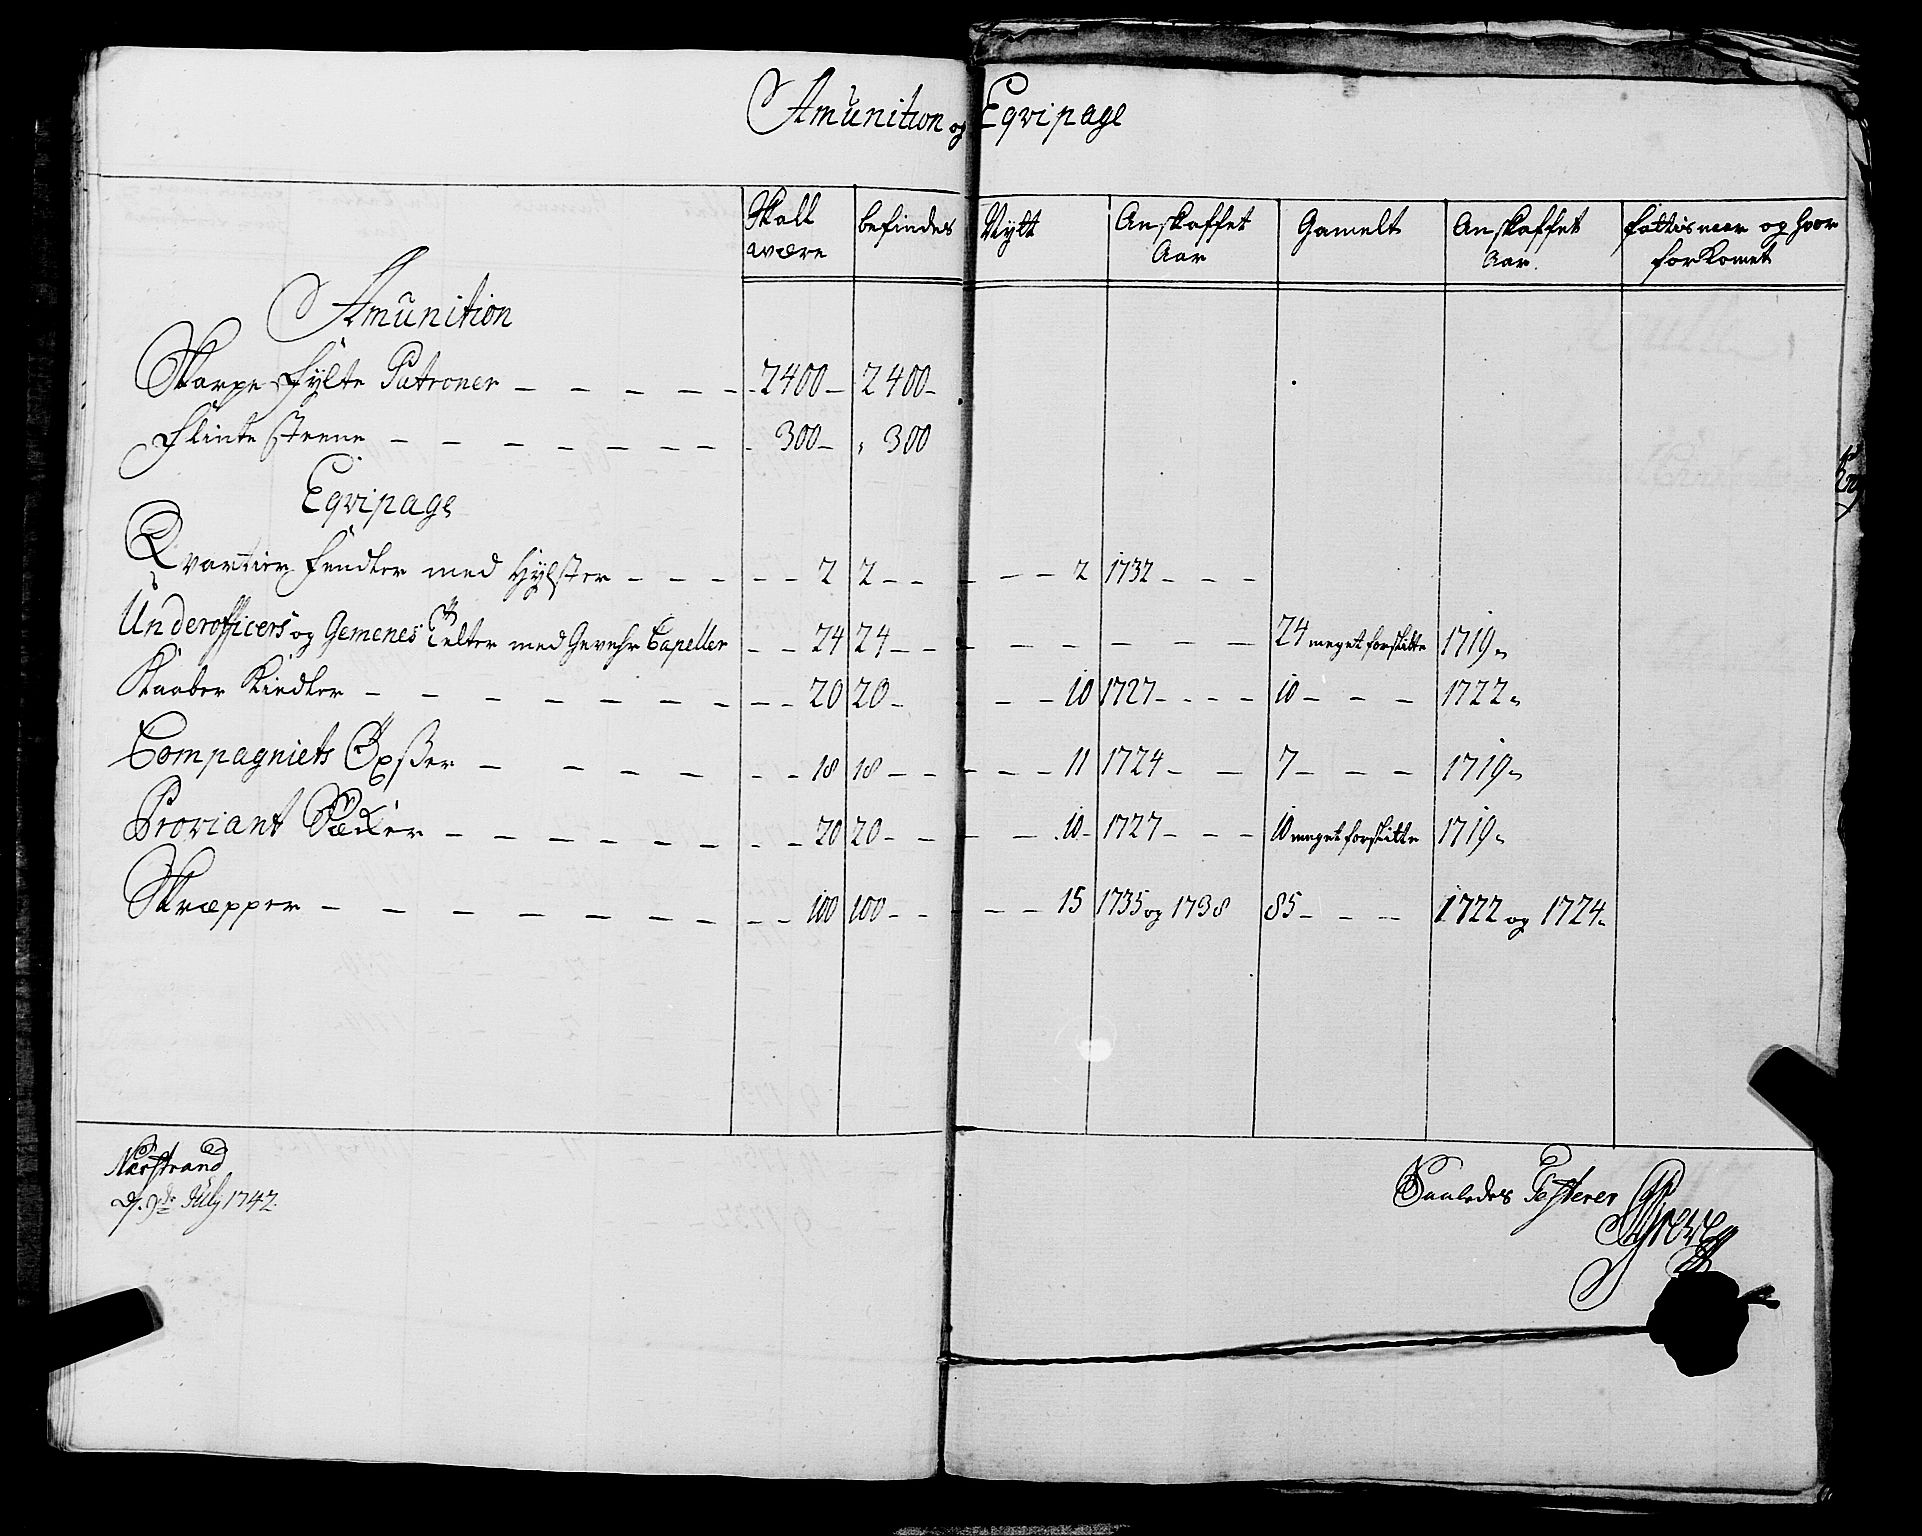 Amunition og Eqvipage
Skall være | befindes | Nytt | Anskaffet Aar | Gamelt | Anskaffet Aar. | fattis naar og hvor forkomet
Amunition
Skarpe fylte Patroner — 2400 — 2400 —
Flinte steene — 300 — 300
Eqvipage
Qvartier fendler med Hylster — 2 | 2 — 2 | 1732 —
Underofficers og Gemenes Telter med Gevehr Capeller — 24 | 24 — 24 meget forslitte | 1719
Kaaber Kiedler — 20 | 20 — 10 | 1727 — 10 — 1722
Compagniets Øxßer — 18 | 18 — 11 | 1724 — 7 — 1719
Proviant Sækker — 20 | 20 — 10 — 1727 — 10 meget forslitte | 1719
Skræpper — 100 | 100 — 15 | 1735 og 1738 | 85 — 1722 og 1724
Nærstrand
d. 9de July 1742.
Saaledes Testerer